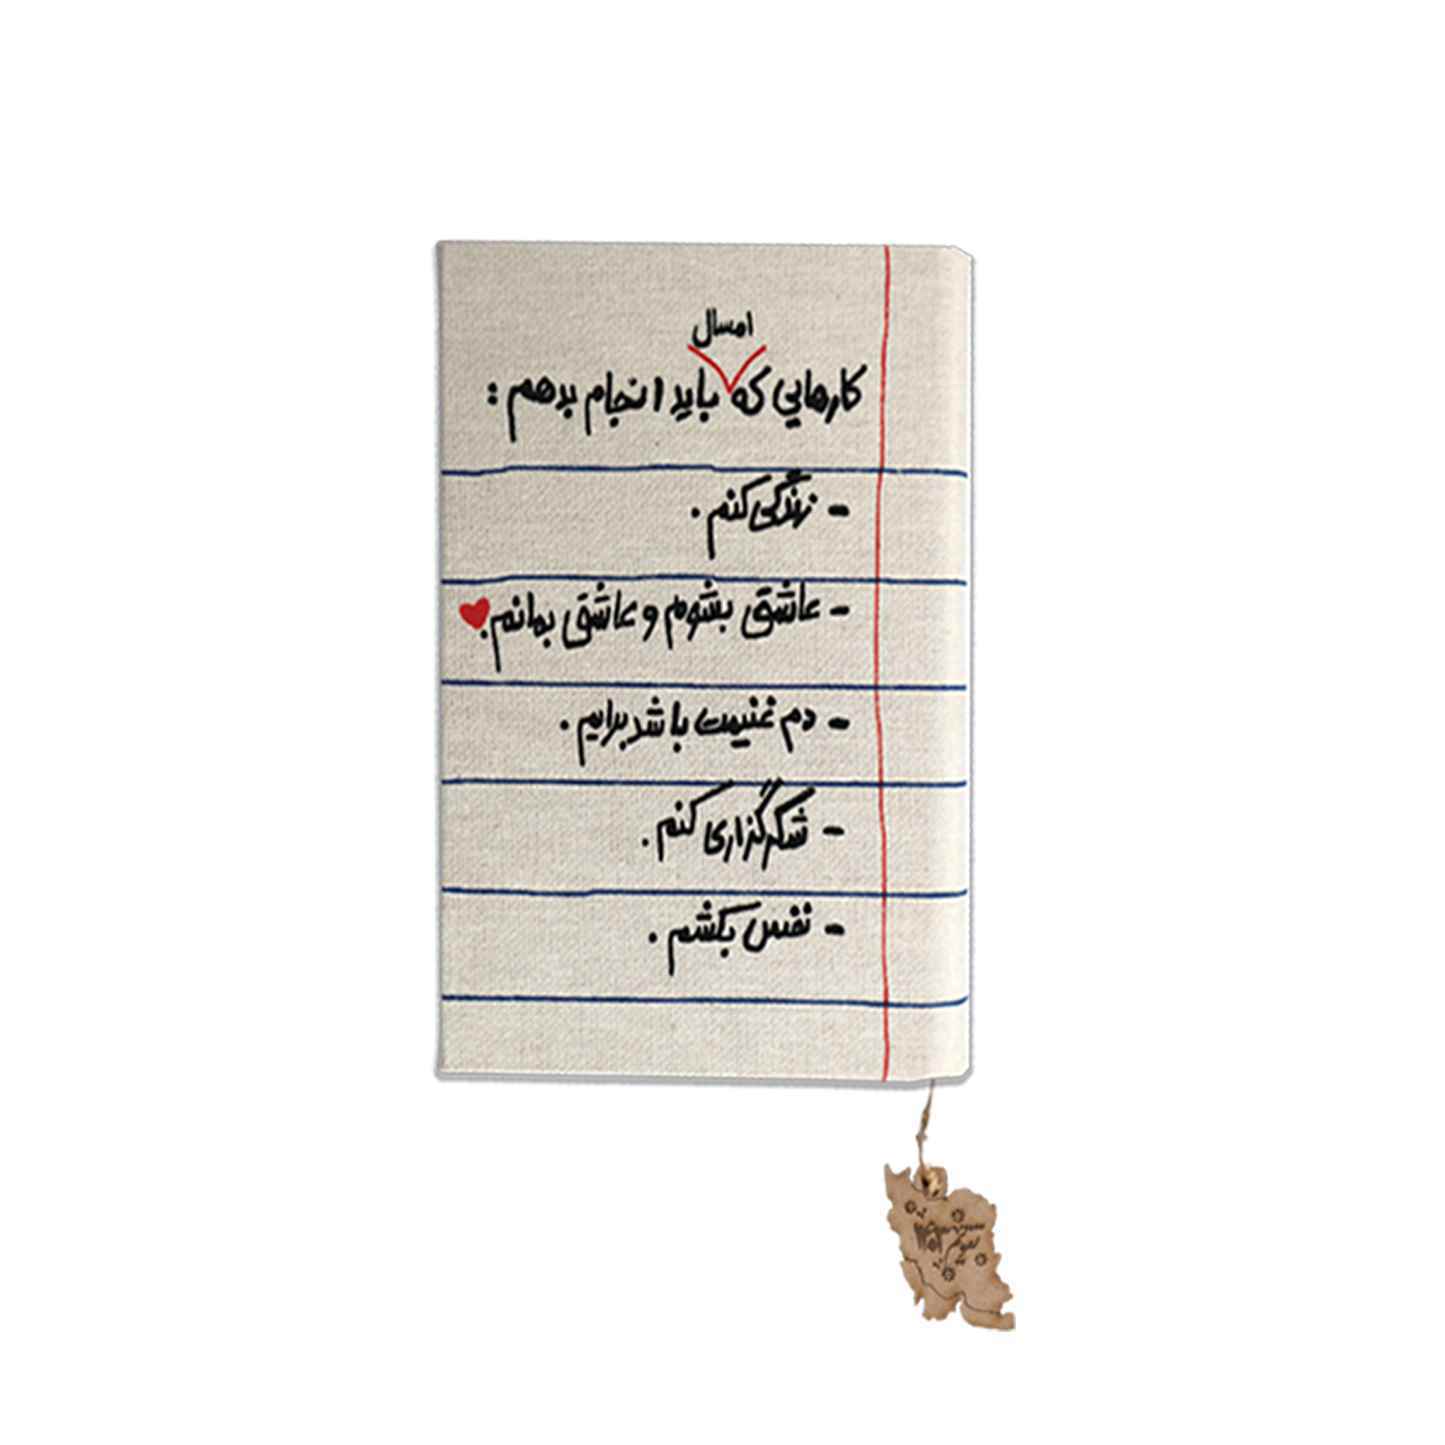 امسال
کارهایی که باید انجام بدهم :
- زندگی کنم .
- عاشق بشوم و عاشق بمانم.
- دم غنیمت باشد برایم .
- شکرگزاری کنم .
- نفس بکشم .